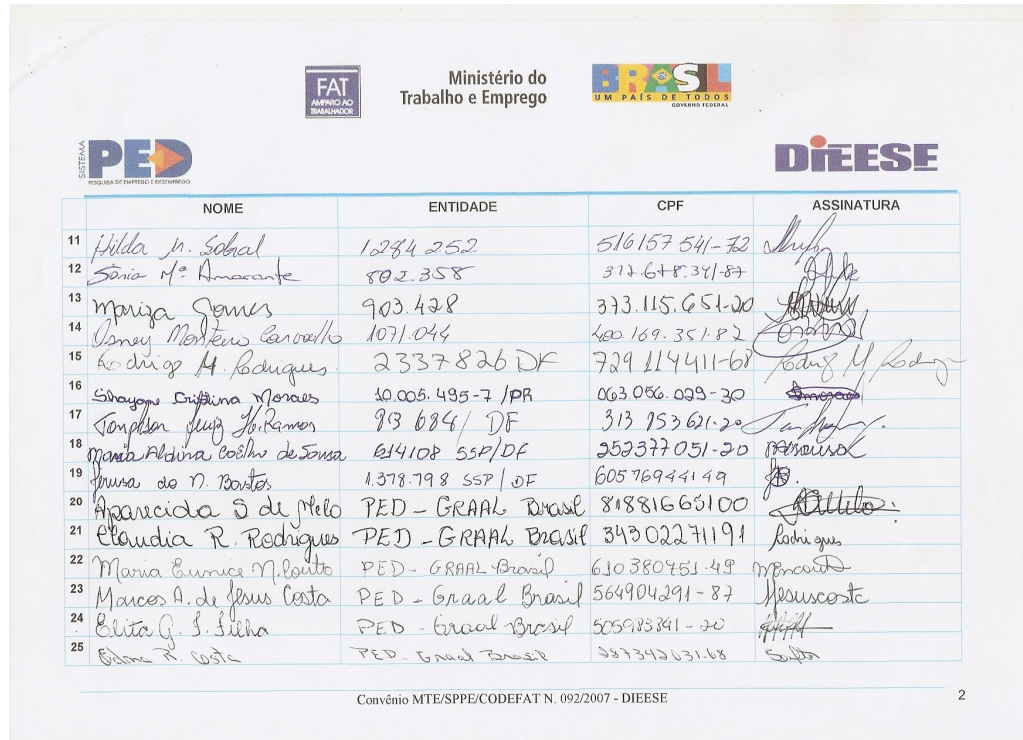 FAT
AMPARO AO
TRABALHADOR
Ministério do
Trabalho e Emprego
BRASIL
UM PAÍS DE TODOS
GOVERNO FEDERAL
SISTEMA
PED
PESQUISA DE EMPREGO E DESEMPREGO
DIEESE
NOME ENTIDADE CPF ASSINATURA
11 Hilda M. Sobral 1284 252 516157 541-72
12 Sônia Mª Amarante 802.358 317.678.341-87
13 Mariza Gomes 903.428 373.115.651-20
14 Osney Monteiro Carvalho 1071.044 400.169.351-82
15 Rodrigo M. Rodrigues 2337826 DF 729 114411-68 Rodrig M Rodrig
16 Cristina Moraes 10.005.495-7 /PR 063.056.029-30
17 Luiz H. Ramos 913 684/ DF 313 953 621-20
18 Maria Aldina Coêlho de Sousa 614108 SSP/DF 252377051-20
19 Jerusa do N. Bastos 1.378.798 SSP/DF 60576944149
20 Aparecida S de Melo PED - GRAAL Brasil 81881665100
21 Claudia R. Rodrigues PED - GRAAL Brasil 34302271191 Rodrigues
22 Maria Eunice N. Couto PED - GRAAL Brasil 610380751-49
23 Marcos A. de Jesus Costa PED - Graal Brasil 564904291-87 Jesuscosta
24 Elita G. S. Filha PED - Graal Brasil 505983841-20
25 Edna R. Costa PED - Graal Brasil 287342031.68
Convênio MTE/SPPE/CODEFAT N. 092/2007 - DIEESE
2